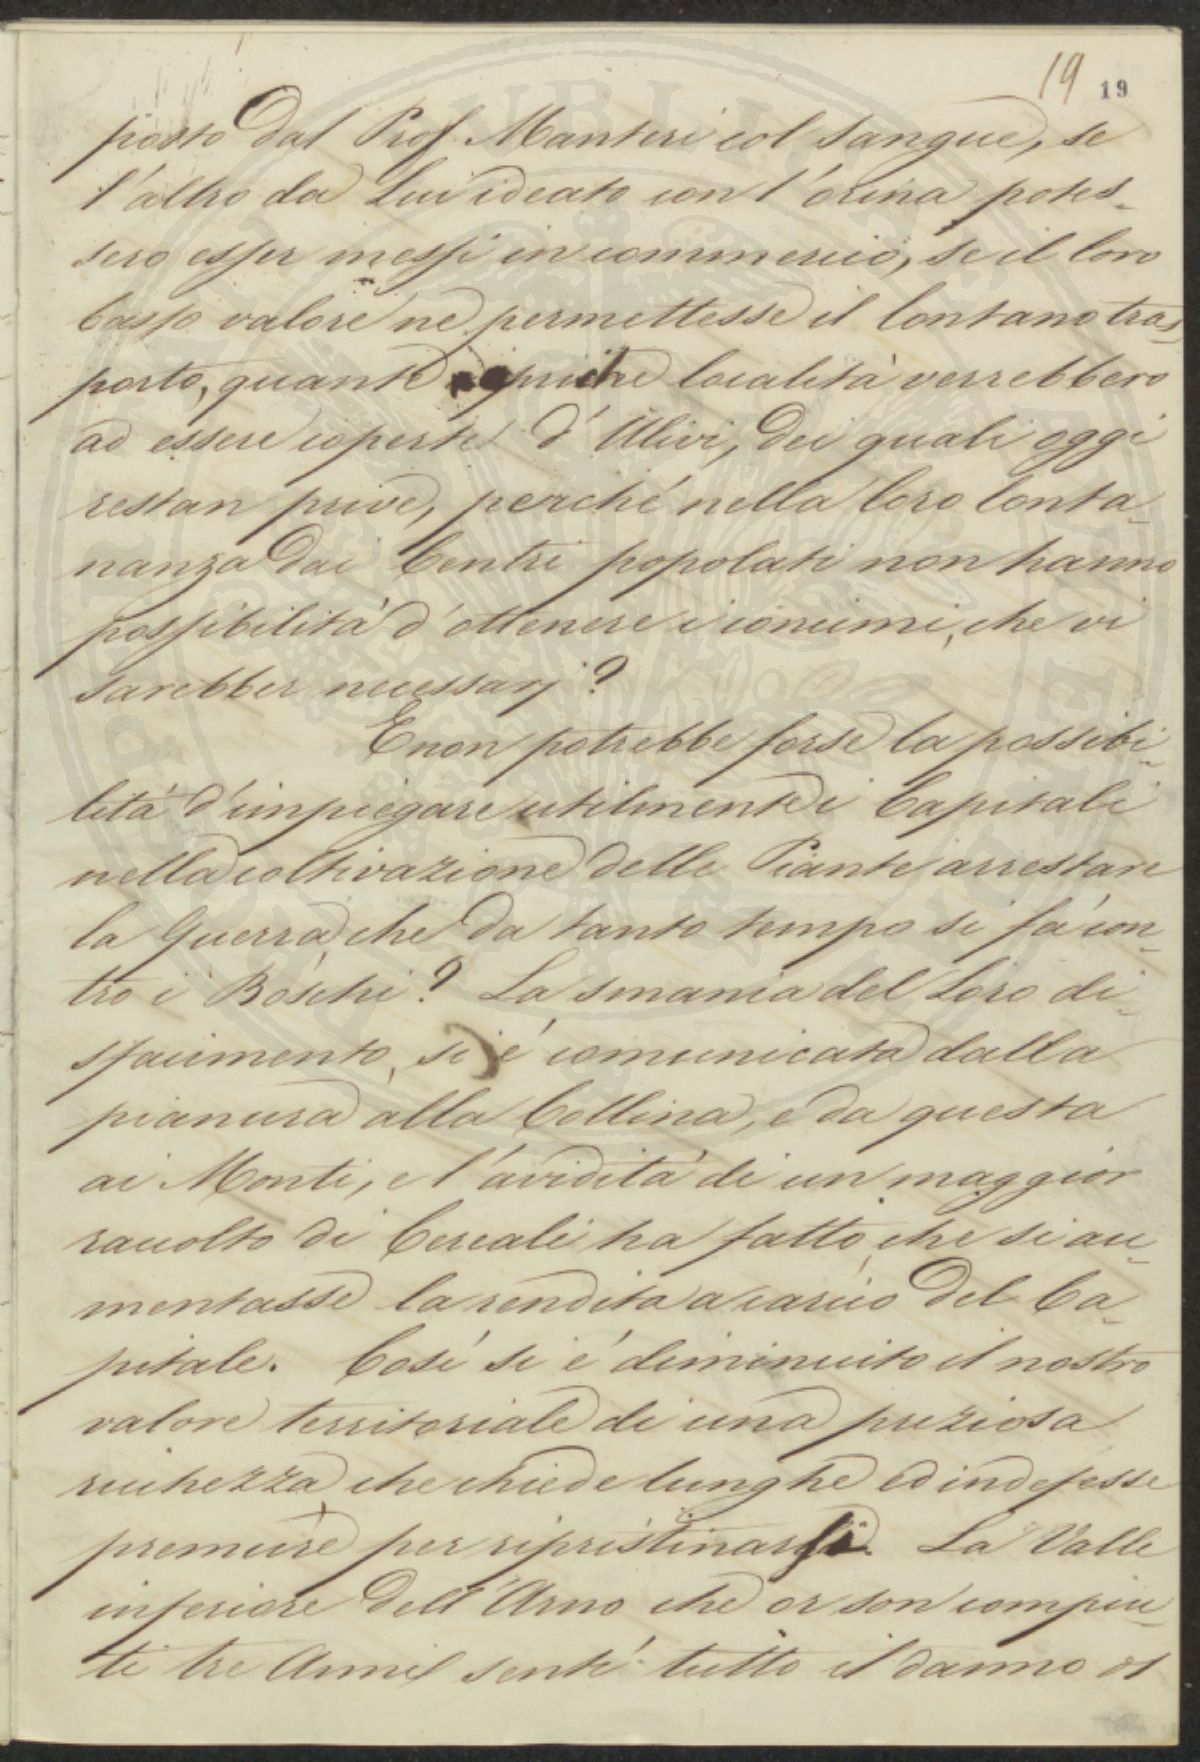 19 19
posto dal Prof. Manteri col sangue, se
l'altro da Lui ideato con l'orina potes-
sero esser messi in commercio, se il loro
basso valore ne permettesse il lontano tras-
porto, quante apriche località verrebbero
ad essere coperte d'Ulivi, dei quali oggi
restan prive, perché nella loro lonta-
nanza dai Centri popolati non hanno
possibilità d'ottenere i concimi, che vi
sarebber necessarj?
E non potrebbe forse la possibi-
lità d'impiegare utilmente i Capitali
nella coltivazione delle Piante arrestare
la Guerra, che da tanto tempo si fà con-
tro i Boschi? La smania del Loro di-
sfacimento, si è comunicata dalla
pianura alla Collina, e da questa
ai Monti, e l'avidità di un maggior
raccolto di Cereali ha fatto, che si au-
mentasse la rendita a carico del Ca-
pitale. Così si è diminuito il nostro
valore territoriale di una preziosa
ricchezza, che chiede lunghe ed indefesse
premure per ripristinarsi. La Valle
inferiore dell'Arno che or son compiu-
ti tre Anni sentì tutto il danno d